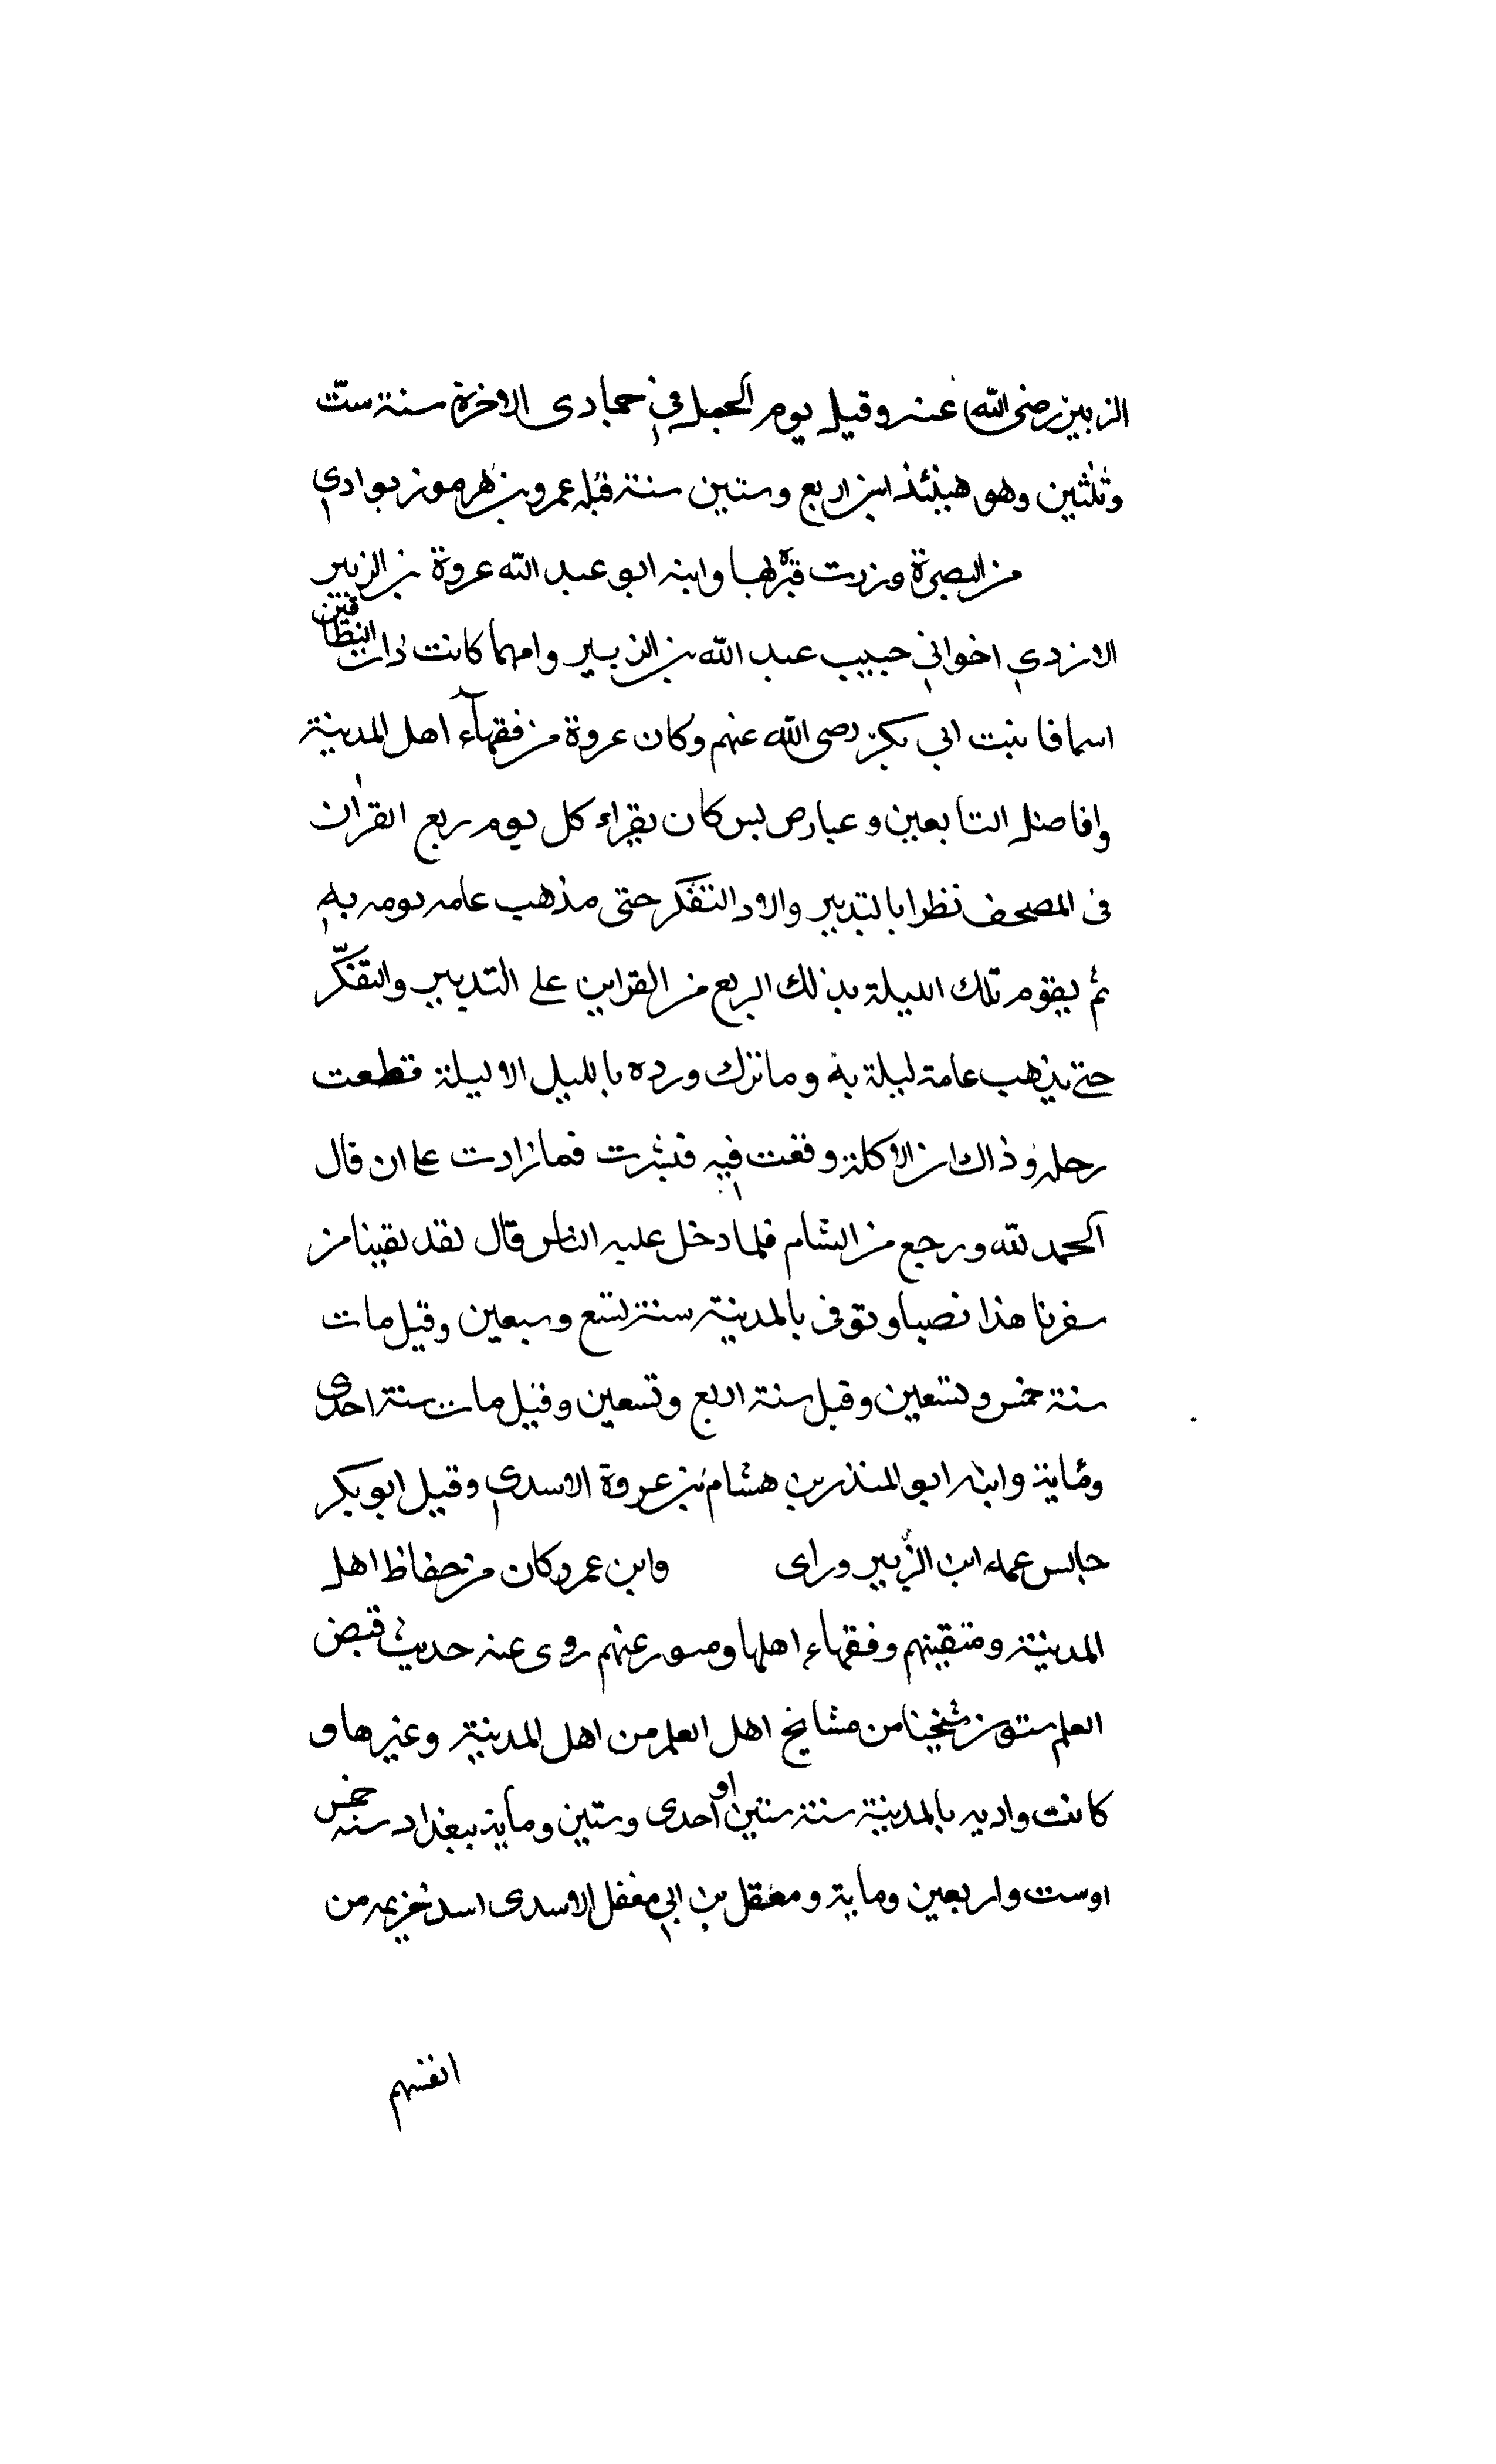 الزبير رضى الله عنه وقيل يوم الجمل في جمادى الاخرة سنة ستّ
وثلثين وهو هينئذ ابن اربع وستين سنة قبله عمرو بن هرموز بوادي
من البصرة وزرت قبره بها وابنه ابو عبد الله عروة بن الزبير
الازدي اخواني حبيب عبد الله بن الزبير وامهما كانت ذات النطاقين
اسما فا بنت ابي بكر رضى الله عنهم وكان عروة من فقهاء اهل المدينة
وافاضل التابعين وعبا كان يقراء كل يوم ربع القران
فى المصحف نظرا بالتدبير والاد التفكر حتى مذهب عامه يومه به
ثم يقوم تلك الليلة بذلك الربع من القراين على التدبير والتفكّر
حتى يذهب عامة ليلة به وما ترك ورده بالليل الا ليلة قطعت
رجله وذاك ان الاكلة وقعت فيه فنشرت فما زادت على ان قال
الحمد لله ورجع من الشام فلما دخل عليه الناس قال لقد لقينا من
سفرنا هذا نصبا وتوفى بالمدينة سنة تسع وسبعين وقيل مات
سنة خمس وتسعين وقيل سنة اربع وتسعين وقيل مات سنة احدى
ومائة وابنه ابو المنذر بن هشام بن عروة الاسدي وقيل ابو بكر
جالس عمه ابن الزبير وراى وابن عمر وكان من حفاظ اهل
المدينة ومتقينهم وفقهاء اهلها عنهم روى عنه حديث قبض
العلم ستون شيخنا من مشايخ اهل العلم من اهل المدينة وغيرها و
كانت وادية بالمدينة سنة ستين او احدى وستين وماية ببغداد سنة خمس
اوست واربعين وماية ومعقل بن ابي معقل الاسدى اسد خزيمه من
انفسهم